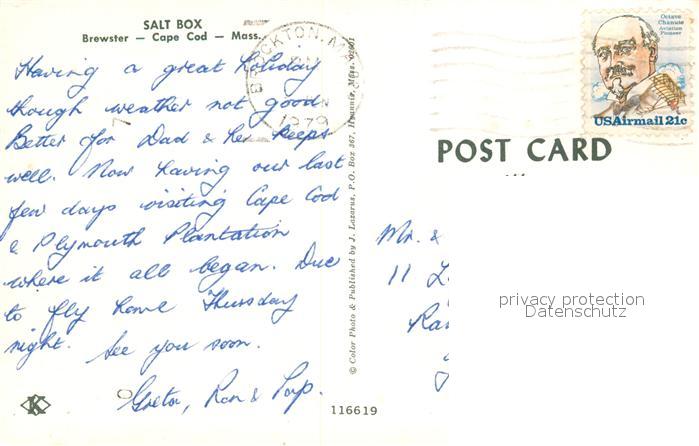 SALT BOX
Brewster — Cape Cod — Mass.
Having a great holiday
though weather not good.
Better for Dad & he keeps
well. Now having our last
few days visiting Cape Cod
& Plymouth Plantation
where it all began. Due
to fly home Thursday
night. See you soon.
Greta, Ron & Pop.
K
© Color Photo & Published by J. Lazarus, P.O. Box 367, Hyannis, Mass. 02601
BROCKTON, MA
1979
Octave
Chanute
Aviation
Pioneer
USAirmail 21c
POST CARD
Mr. &
11
privacy protection
Datenschutz
116619